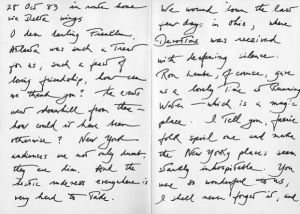 28 Oct 83 in route home
via Delta wings
O dear lasting Friendlum.
Atlanta was such a Treat
for us, such a feast of
loving friendship, how can
we thank you? The events
went downhill from there —
how could it have been
otherwise? New York
audiences are not only dumb,
they are dim. And the
hectic rudeness everywhere is
very hard to take.
We wound down the last
few days in Ohio, where
Devotions was received
with deafening silence.
Ron Hanke, of course, gave
us a lovely time at Running
Water — which is a magic
place. I Tell you,
folk spoil one and make
the New Yorky places seem
starkly inhospitable. You
were so wonderful to us,
I shall never forget it, and